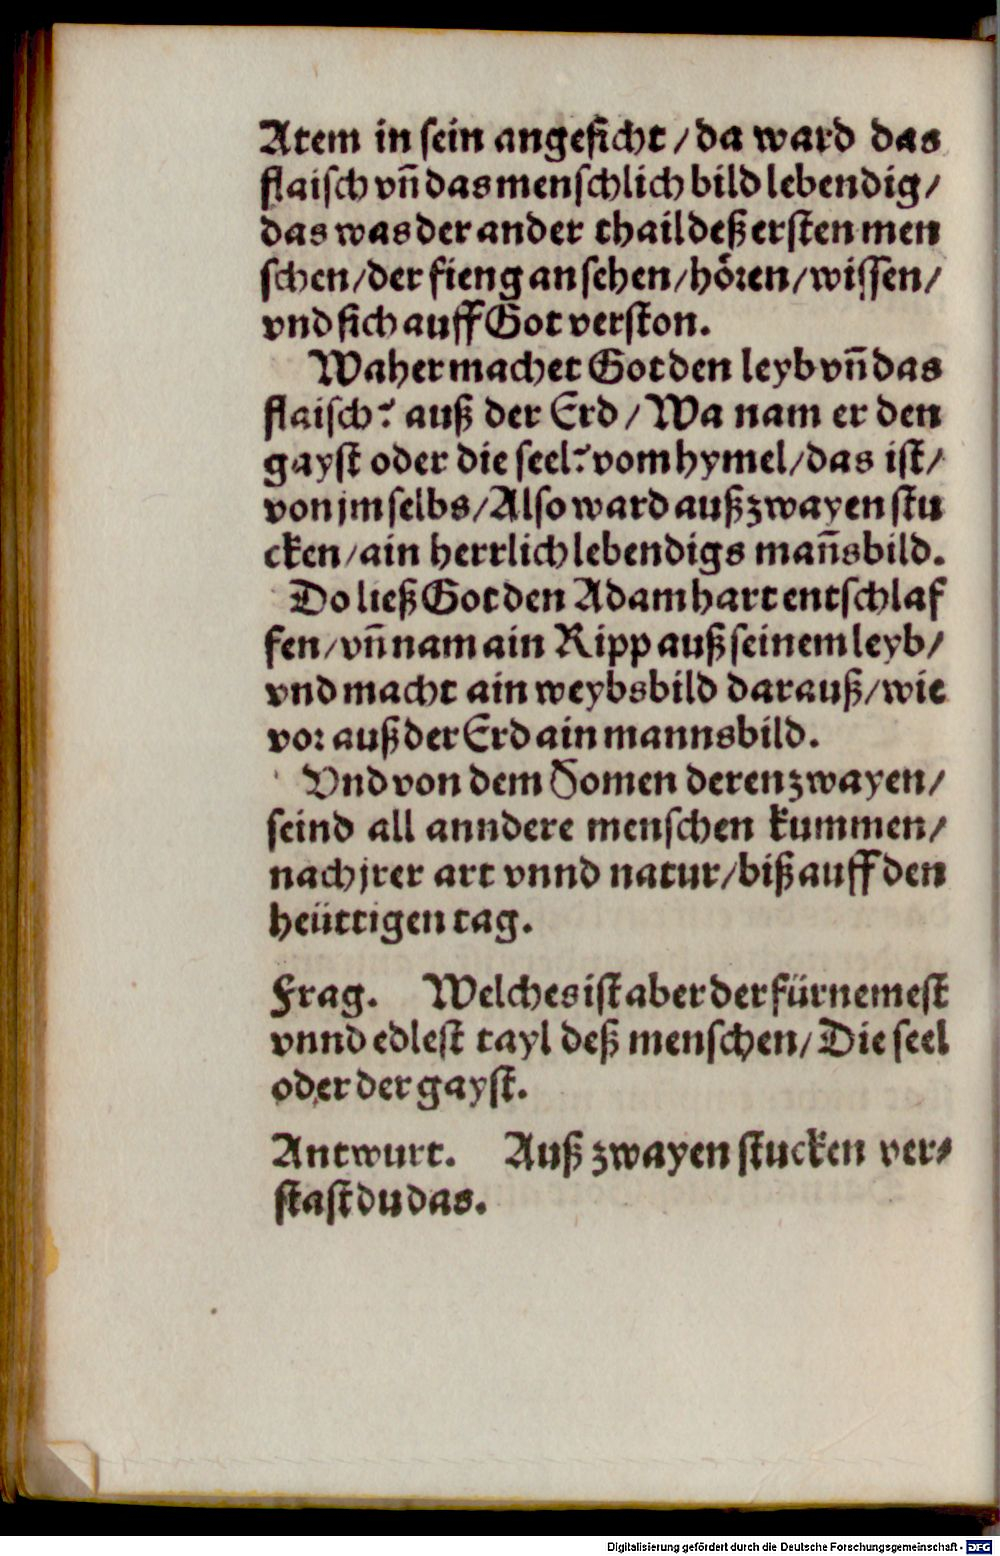 Atem in sein angesicht / da ward das
flaisch vn̄ das menschlich bild lebendig /
das was der ander thail deß ersten men
schen / der fieng an sehen / hören / wissen /
vnd sich auff Got verston.
Waher machet Got den leyb vn̄ das
flaisch? auß der Erd / Wa nam er den
gayst oder die seel? vom hymel / das ist /
von jm selbs / Also ward auß zwayen stu
cken / ain herrlich lebendigs man̄sbild.
Do ließ Got den Adam hart entschlaf
fen / vn̄ nam ain Ripp auß seinem leyb /
vnd macht ain weybsbild darauß / wie
vor auß der Erd ain mannsbild.
Vnd von dem Somen deren zwayen /
seind all anndere menschen kummen /
nach jrer art vnnd natur / biß auff den
heüttigen tag.
Frag. Welches ist aber der fürnemest
vnnd edlest tayl deß menschen / Die seel
oder der gayst.
Antwurt. Auß zwayen stucken ver⸗
stast du das.
Digitalisierung gefördert durch die Deutsche Forschungsgemeinschaft - DFG